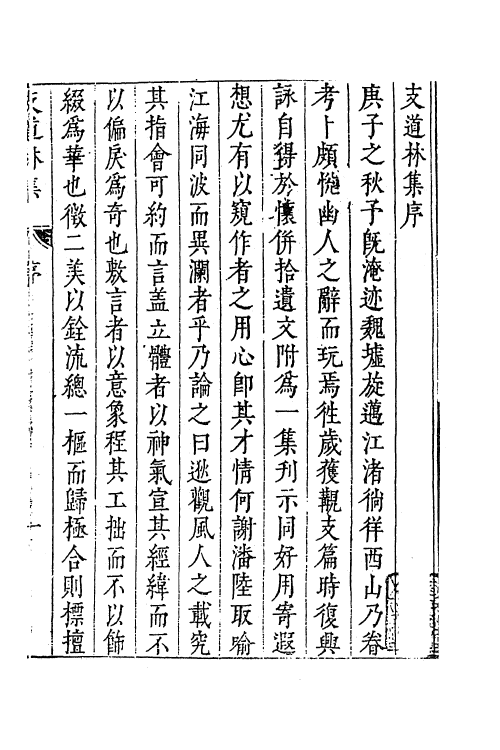 支道林集序
庚子之秋予旣淹迹魏墟旋邁江渚徜徉西山乃眷
考卜頗愜幽人之辭而玩焉徃歲獲觀支篇時復興
詠自得於懷併拾遺文附爲一集刋示同好用寄遐
想尤有以窺作者之用心卽其才情何謝潘陸取喻
江海同波而異瀾者乎乃論之曰逖觀風人之載究
其指會可約而言盖立體者以神氣宣其經緯而不
以偏戾爲奇也敷言者以意象程其工拙而不以飾
綴爲華也徵二美以銓流總一樞而歸極合則標擅
支道林集
序
一